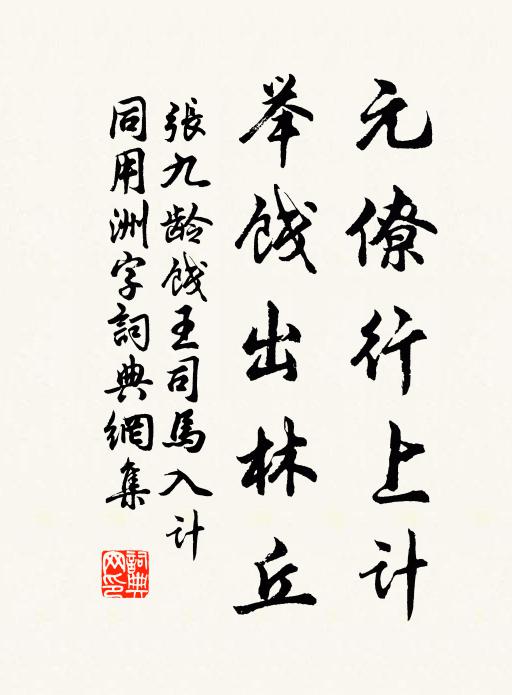 元僚行上计
举饯出林丘
張九龄饯王司馬入计
同用洲字詞典網集
詞典
网印